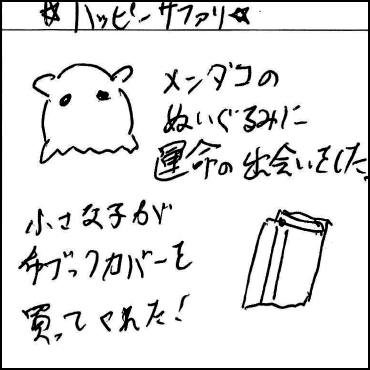 ☆ハッピーサファリ☆
メンダコの
ぬいぐるみに
運命の出会いをした。
小さな子が
布ブックカバーを
買ってくれた!